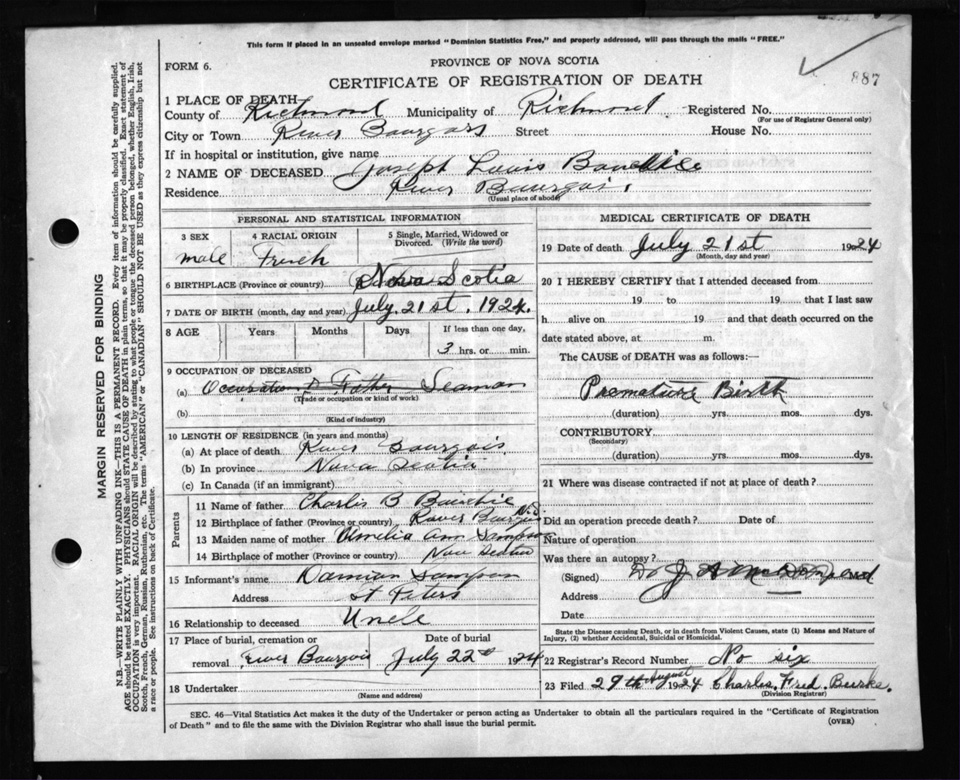 This form if placed in an unsealed envelope marked "Dominion Statistics Free," and properly addressed, will pass through the mails "FREE."
FORM 6.
PROVINCE OF NOVA SCOTIA
887
CERTIFICATE OF REGISTRATION OF DEATH
1 PLACE OF DEATH—
County of Richmond Municipality of Richmond Registered No.
(For use of Registrar General only)
City or Town River Bourgois Street House No.
If in hospital or institution, give name
2 NAME OF DECEASED Joseph Louis
Residence River Bourgois
(Usual place of abode)
PERSONAL AND STATISTICAL INFORMATION
3 SEX 4 RACIAL ORIGIN 5 Single, Married, Widowed or Divorced. (Write the word)
male French
6 BIRTHPLACE (Province or country) Nova Scotia
7 DATE OF BIRTH (month, day and year) July 21st. 1924.
8 AGE Years Months Days If less than one day,
3 hrs. or min.
9 OCCUPATION OF DECEASED
(a) Occupation of Father Seaman
(Trade or occupation or kind of work)
(b)
(Kind of industry)
10 LENGTH OF RESIDENCE (in years and months)
(a) At place of death River Bourgois
(b) In province Nova Scotia
(c) In Canada (if an immigrant)
Parents
11 Name of father Charles B
12 Birthplace of father (Province or country) River Bourgois N.S.
13 Maiden name of mother Amelia Ann Sampson
14 Birthplace of mother (Province or country) Nova Scotia
15 Informant's name Damian Sampson
Address St Peters
16 Relationship to deceased Uncle
17 Place of burial, cremation or Date of burial
removal River Bourgois July 22nd 1924
18 Undertaker
(Name and address)
MEDICAL CERTIFICATE OF DEATH
19 Date of death July 21st 1924
(Month, day and year)
20 I HEREBY CERTIFY that I attended deceased from
19 to 19 that I last saw
h alive on 19 and that death occurred on the
date stated above, at m.
The CAUSE of DEATH was as follows:
Premature Birth
(duration) yrs. mos. dys.
CONTRIBUTORY
(Secondary)
(duration) yrs. mos. dys.
21 Where was disease contracted if not at place of death?
Did an operation precede death? Date of
Nature of operation
Was there an autopsy?
(Signed) Dr J A
Address
Date
State the Disease causing Death, or in death from Violent Causes, state (1) Means and Nature of Injury, (2) whether Accidental, Suicidal or Homicidal.
22 Registrar's Record Number No six
23 Filed 29th August 1924 Charles Fred. Burke.
(Division Registrar)
SEC. 46—Vital Statistics Act makes it the duty of the Undertaker or person acting as Undertaker to obtain all the particulars required in the "Certificate of Registration
of Death" and to file the same with the Division Registrar who shall issue the burial permit.
(OVER)
MARGIN RESERVED FOR BINDING
N.B.—WRITE PLAINLY WITH UNFADING INK—THIS IS A PERMANENT RECORD. Every item of information should be carefully supplied.
AGE should be stated EXACTLY. PHYSICIANS should STATE CAUSE OF DEATH in plain terms, so that it may be properly classified. Exact statement of
OCCUPATION is very important. RACIAL ORIGIN will be described by stating to what people or tongue the deceased person belonged, whether English, Irish,
Scotch, French, German, Russian, Ruthenian, etc. The terms "AMERICAN" or "CANADIAN" SHOULD NOT BE USED as they express citizenship but not
a race or people. See instructions on back of Certificate.